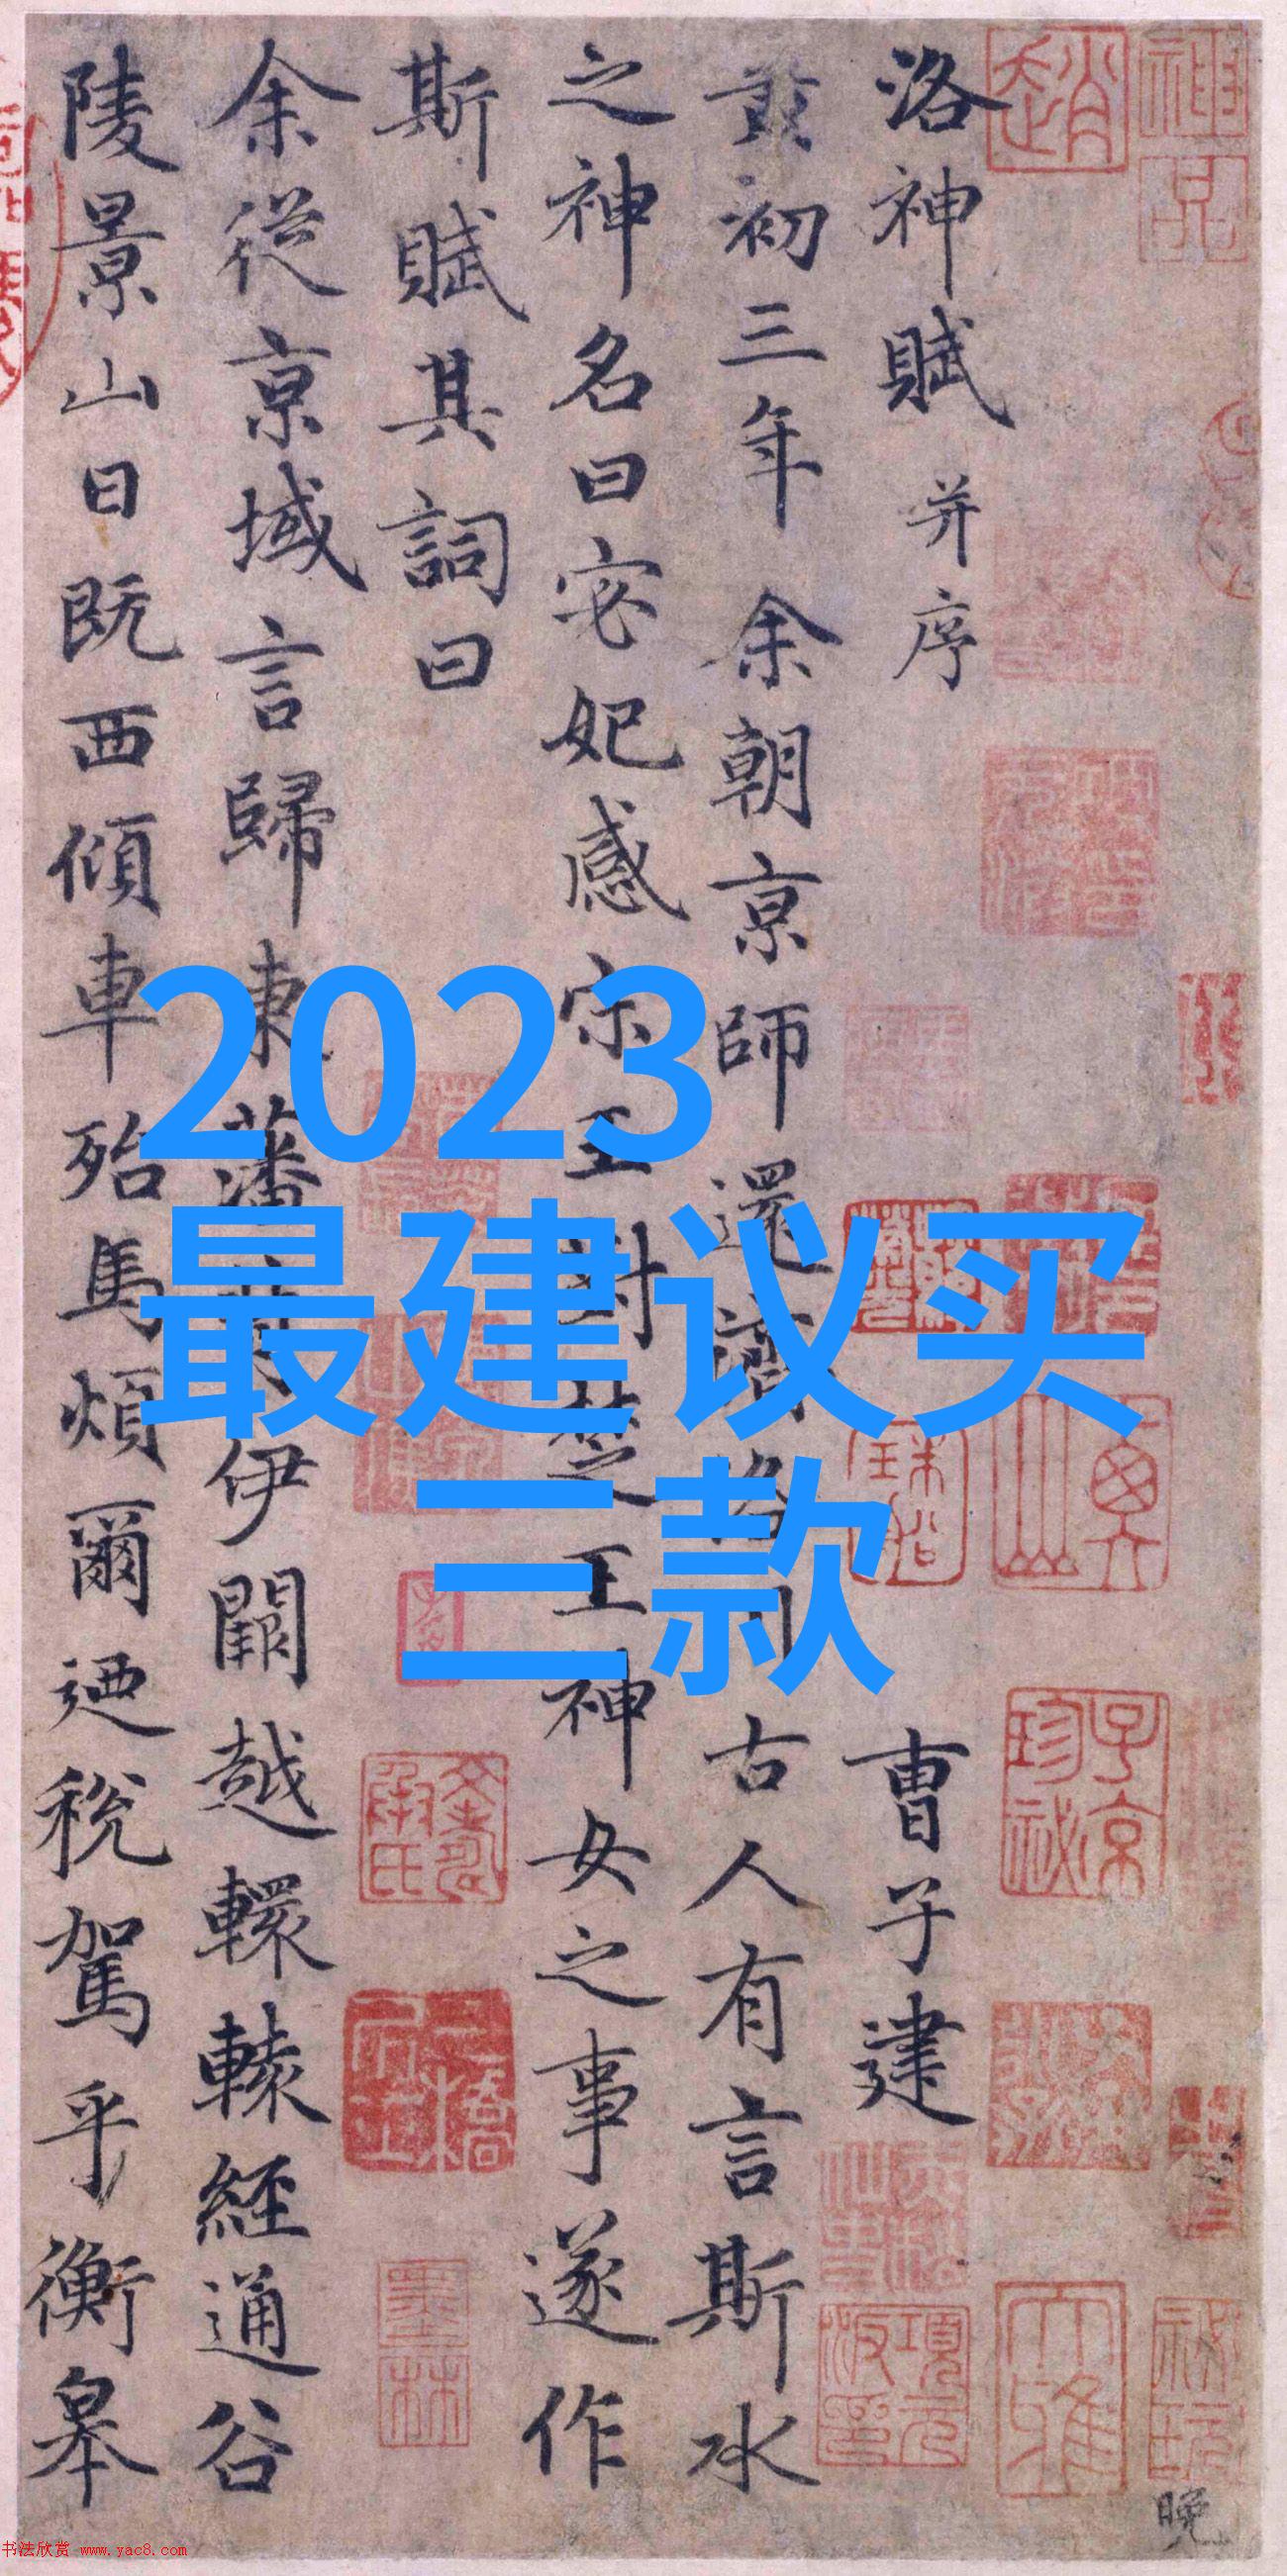 洛神賦 并序 曹子建
黃初三年余朝京師還濟洛川古人有言斯水
之神名曰宓妃感宋玉對楚王神女之事遂作
斯賦其詞曰
余從京域言歸東藩背伊闕越轘轅經通谷
陵景山日既西傾車殆馬煩爾迺稅駕乎衡皋
2023
最建议买
三款
趙
神品
子京珍祕
項元汴印
墨林
晚
书法欣赏 www.yac8.com